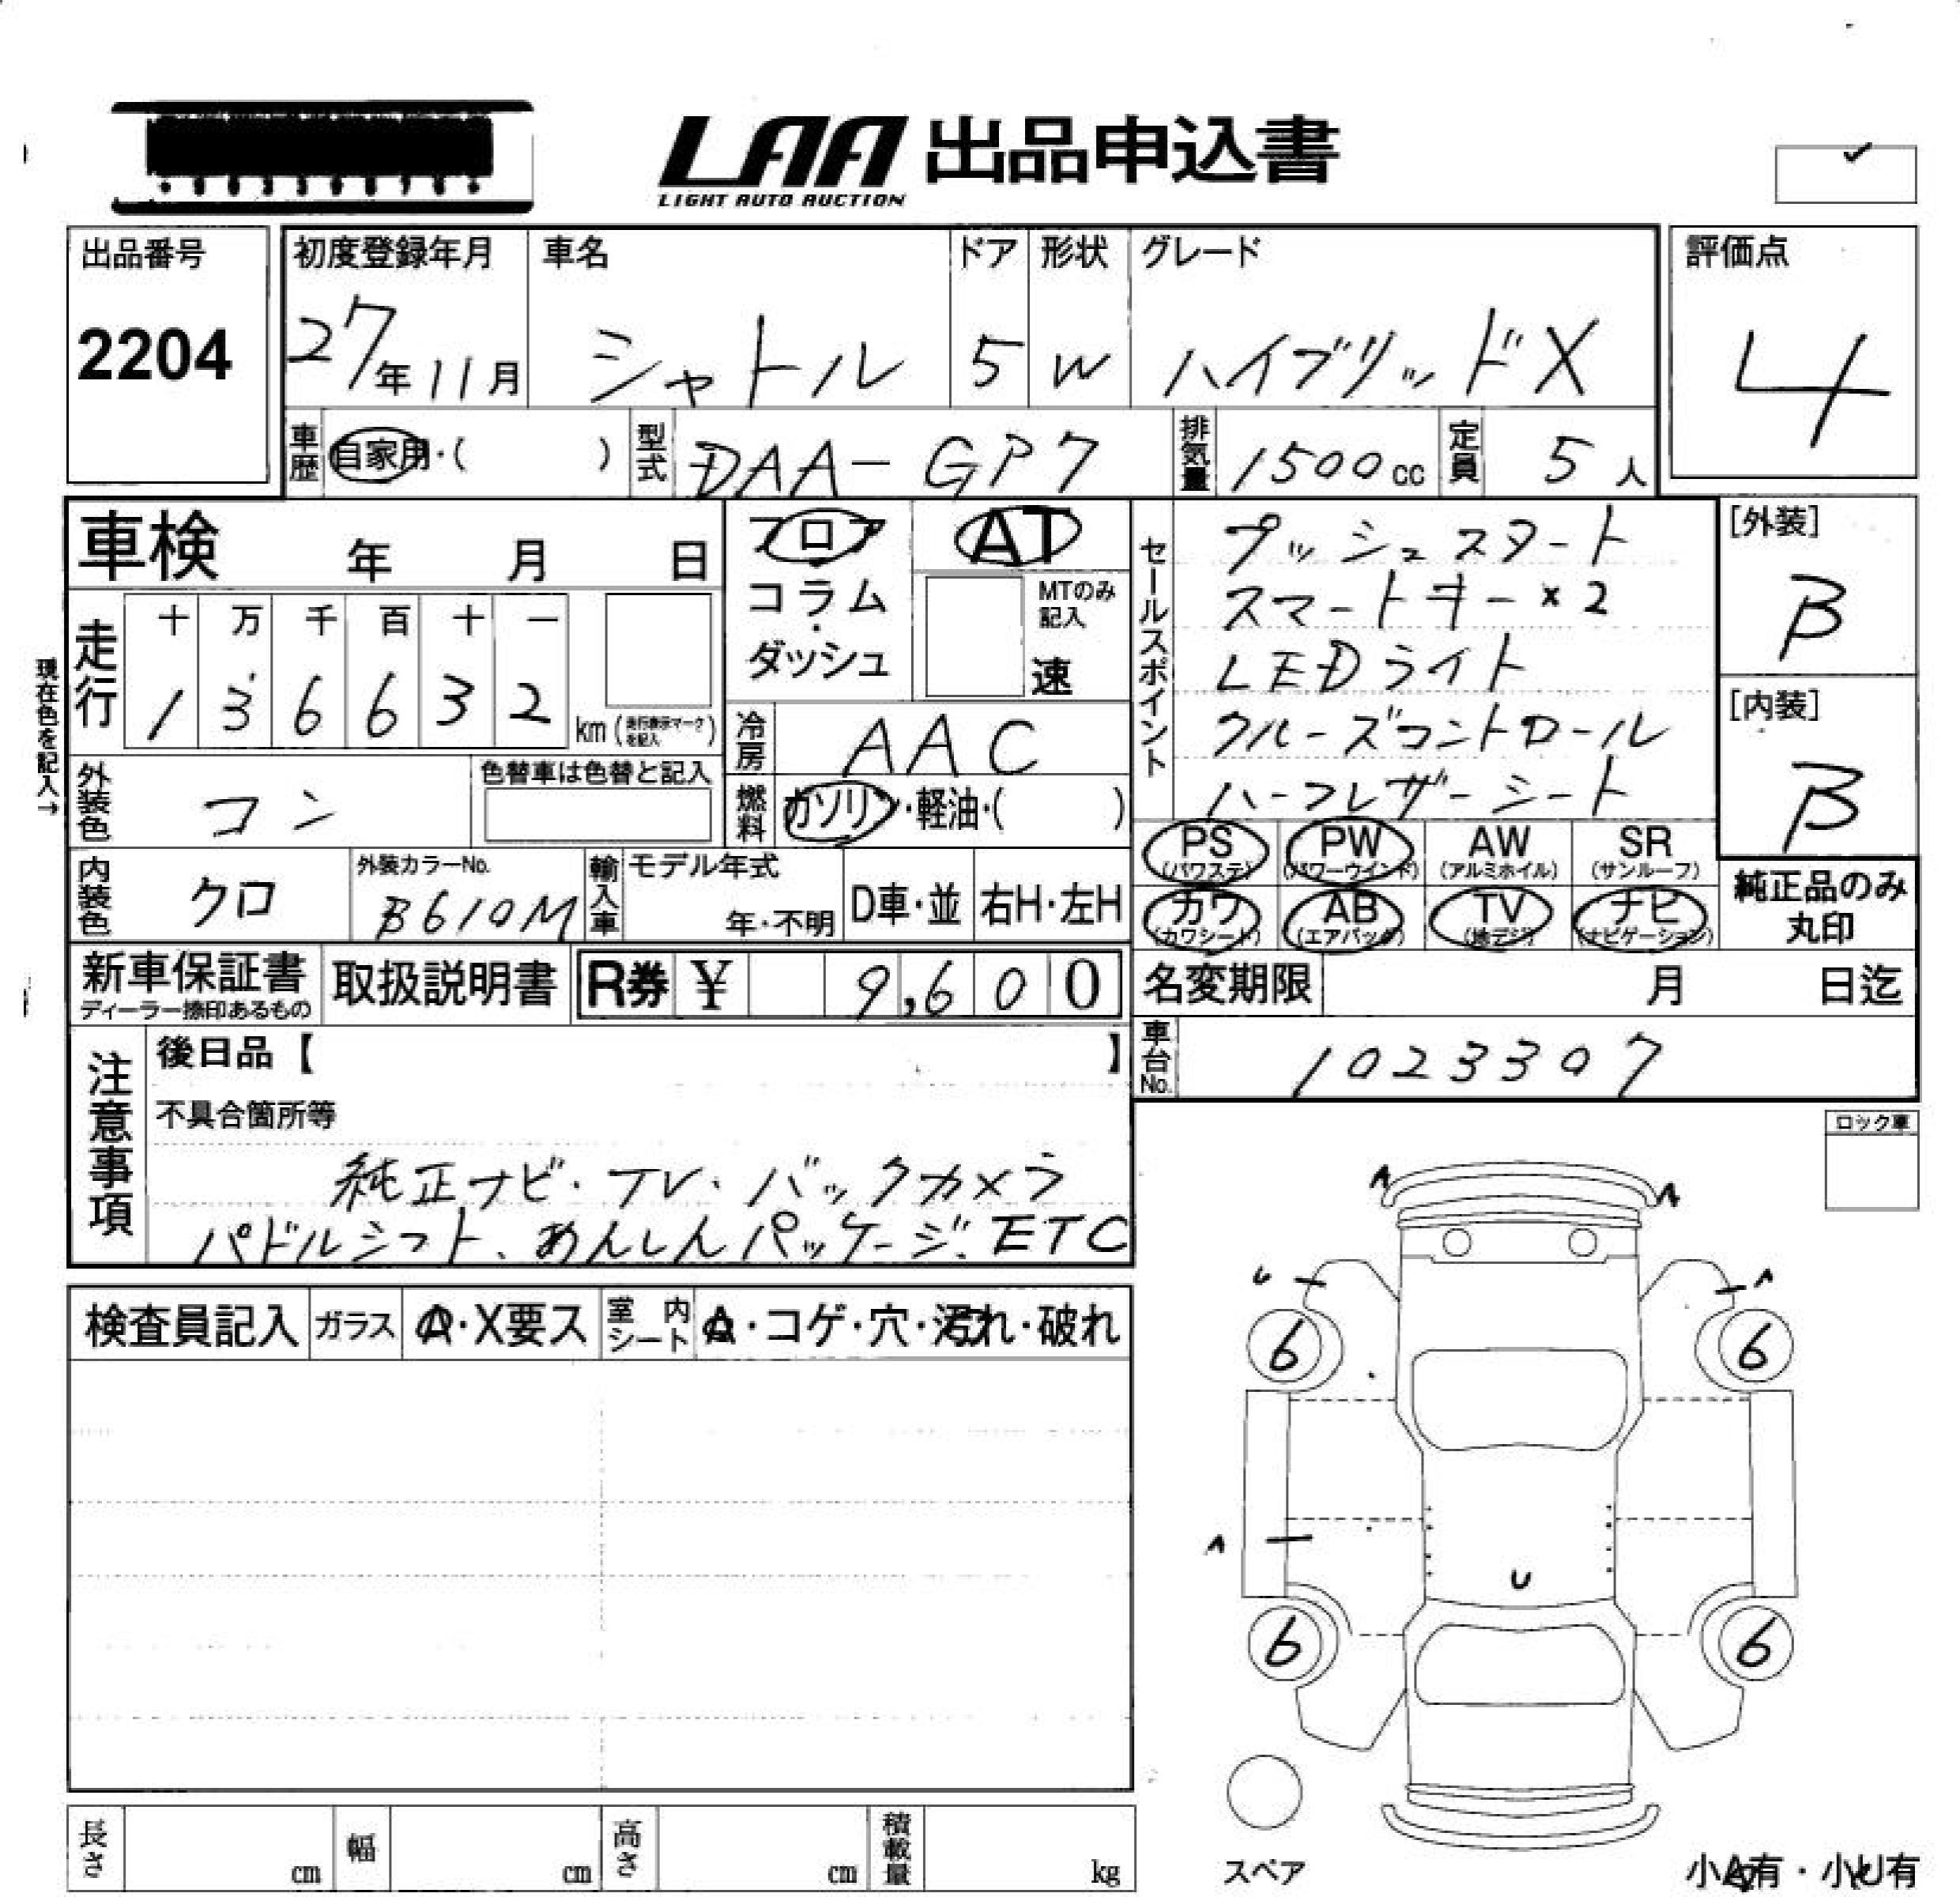 LAA 出品申込書
LIGHT AUTO AUCTION
出品番号 初度登録年月 車名 ドア 形状 グレード 評価点
2204 27年11月 シャトル 5 W ハイブリッドX 4
車歴 自家用・( ) 型式 DAA-GP7 排気量 1500cc 定員 5人
車検 年 月 日
フロア・コラム・ダッシュ
AT
MTのみ記入
速
セールスポイント
プッシュスタート
スマートキー×2
LEDライト
クルーズコントロール
ハーフレザーシート
[外装]
B
[内装]
B
現在色を記入→
走行 十 万 千 百 十 一
1 3 6 6 3 2 km (走行表示マークを記入)
冷房 AAC
外装色 コン 色替車は色替と記入
燃料 ガソリン・軽油・( )
PS (パワステ) PW (パワーウインド) AW (アルミホイル) SR (サンルーフ)
カワ (カワシート) AB (エアバック) TV (地デジ) ナビ (ナビゲーション)
純正品のみ丸印
内装色 クロ 外装カラーNo. B610M 輸入車 モデル年式 年・不明 D車・並 右H・左H
新車保証書 ディーラー捺印あるもの 取扱説明書 R券 ¥ 9,600
名変期限 月 日迄
車台No. 1023307
注意事項
後日品【 】
不具合箇所等
純正ナビ・TV・バックカメラ
パドルシフト、あんしんパッケージ、ETC
ロック車
検査員記入 ガラス A・X要ス 室内シート A・コゲ・穴・汚れ・破れ
A A
U A
6 6
A
U
6 6
スペア
小A有・小U有
長さ cm 幅 cm 高さ cm 積載量 kg